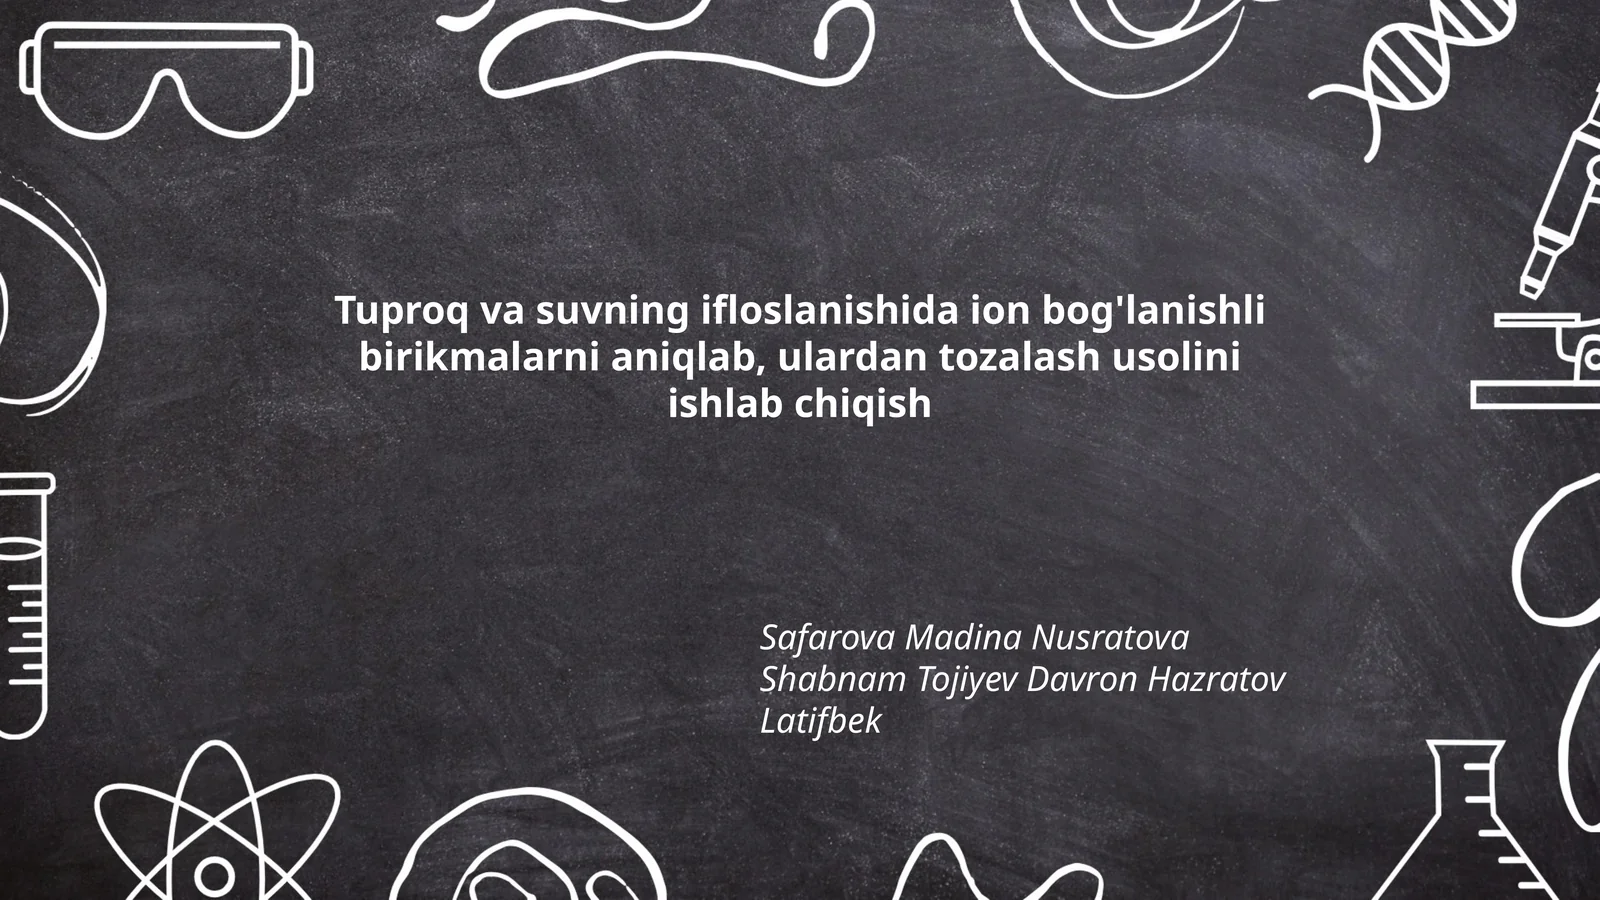 Tuproq va suvning ifloslanishida ion bog'lanishli
birikmalarni aniqlab, ulardan tozalash usolini
ishlab chiqish
Safarova Madina Nusratova
Shabnam Tojiyev Davron Hazratov
Latifbek